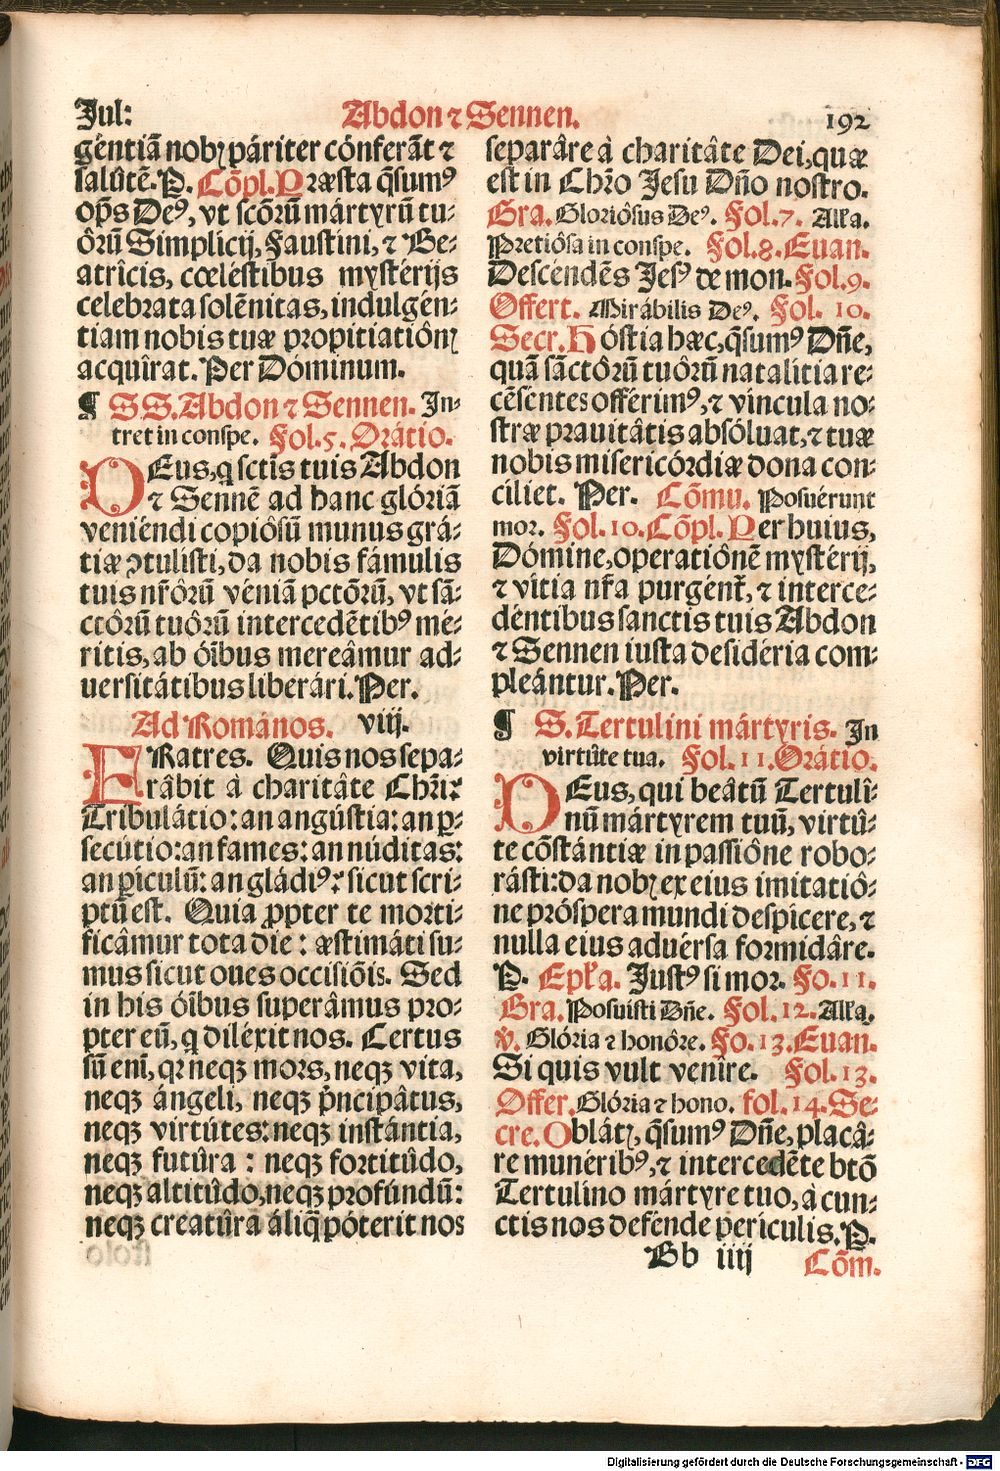 Jul:
Abdon ⁊ Sennen.
192
géntiã nobꝫ páriter cónferãt ⁊
salûtẽ. P. Cõpl. Præsta q̃sumꝰ
op̃s Deꝰ, vt scõrũ mártyrũ tu⸗
ôrũ Simplicij, Faustini, ⁊ Be⸗
atrîcis, cœléstibus mystérijs
celebrata solẽnitas, indulgén⸗
tiam nobis tuæ propitiatiônꝫ
acquîrat. Per Dóminum.
¶ S S. Abdon ⁊ Sennen. In⸗
tret in conspe. Fol. 5. Orátio.
DEus, q sctis tuis Abdon
⁊ Sennẽ ad hanc glóriã
veniéndi copiôsũ munus grá⸗
tiæ ꝯtulisti, da nobis fámulis
tuis nr̃ôrũ véniã pctôrũ, vt sã⸗
ctôrũ tuôrũ intercedẽtibꝰ mé⸗
ritis, ab óĩbus mereâmur ad⸗
uersitátibus liberári. Per.
Ad Romános. viij.
FRatres. Quis nos sepa⸗
râbit à charitâte Chri:
Tribulátio: an angústia: an ꝑ⸗
secútio: an fames: an núditas:
an ꝑículũ: an gládiꝰ: sicut scri⸗
ptũ est. Quia ꝓpter te morti⸗
ficâmur tota die: æstimáti su⸗
mus sicut oues occisiõis. Sed
in his óĩbus superâmus pro⸗
pter eũ, q diléxit nos. Certus
sũ enĩ, qꝛ neqꝫ mors, neqꝫ vita,
neqꝫ ángeli, neqꝫ p̃ncipâtus,
neqꝫ virtútes: neqꝫ instántia,
neqꝫ futûra: neqꝫ fortitûdo,
neqꝫ altitûdo, neqꝫ profúndũ:
neqꝫ creatûra áliq̃ póterit nos
separâre à charitâte Dei, quæ
est in Chr̃o Jesu Dño nostro.
Gra. Gloriôsus Deꝰ. Fol. 7. Alła.
Pretiôsa in conspe. Fol. 8. Euan.
Descéndẽs Jesꝰ de mon. Fol. 9.
Offert. Mirábilis Deꝰ. Fol. 10.
Secr. Hóstia hæc, q̃sumꝰ Dñe,
quã sãctôrũ tuôrũ natalitia re⸗
cẽséntes offérimꝰ, ⁊ vincula no⸗
stræ prauitâtis absóluat, ⁊ tuæ
nobis misericórdiæ dona con⸗
ciliet. Per. Cõmu. Posuérunt
mor. Fol. 10. Cõpl. Per huius,
Dómine, operatiônẽ mystérij,
⁊ vitia nr̃a purgént̃, ⁊ interce⸗
déntibus sanctis tuis Abdon
⁊ Sennen iusta desidéria com⸗
pleántur. Per.
¶ S. Tertulini mártyris. In
virtûte tua. Fol. 11. Orátio.
DEus, qui beátũ Tertulî⸗
nũ mártyrem tuũ, virtû⸗
te cõstántiæ in passiône robo⸗
rásti: da nobꝫ ex eius imitatiô⸗
ne próspera mundi despicere, ⁊
nulla eius aduersa formidâre.
P. Epła. Justꝰ si mor. Fo. 11.
Gra. Posuisti Dñe. Fol. 12. Alła.
℣. Glória ⁊ honôre. Fo. 13. Euan.
Si quis vult venîre. Fol. 13.
Offer. Glória ⁊ hono. fol. 14. Se⸗
cre. Oblátꝫ, q̃sumꝰ Dñe, placâ⸗
re munéribꝰ, ⁊ intercedẽte btõ
Tertulino mártyre tuo, à cun⸗
ctis nos defénde perículis. P.
Bb iiij
Cõm.
Digitalisierung gefördert durch die Deutsche Forschungsgemeinschaft - DFG